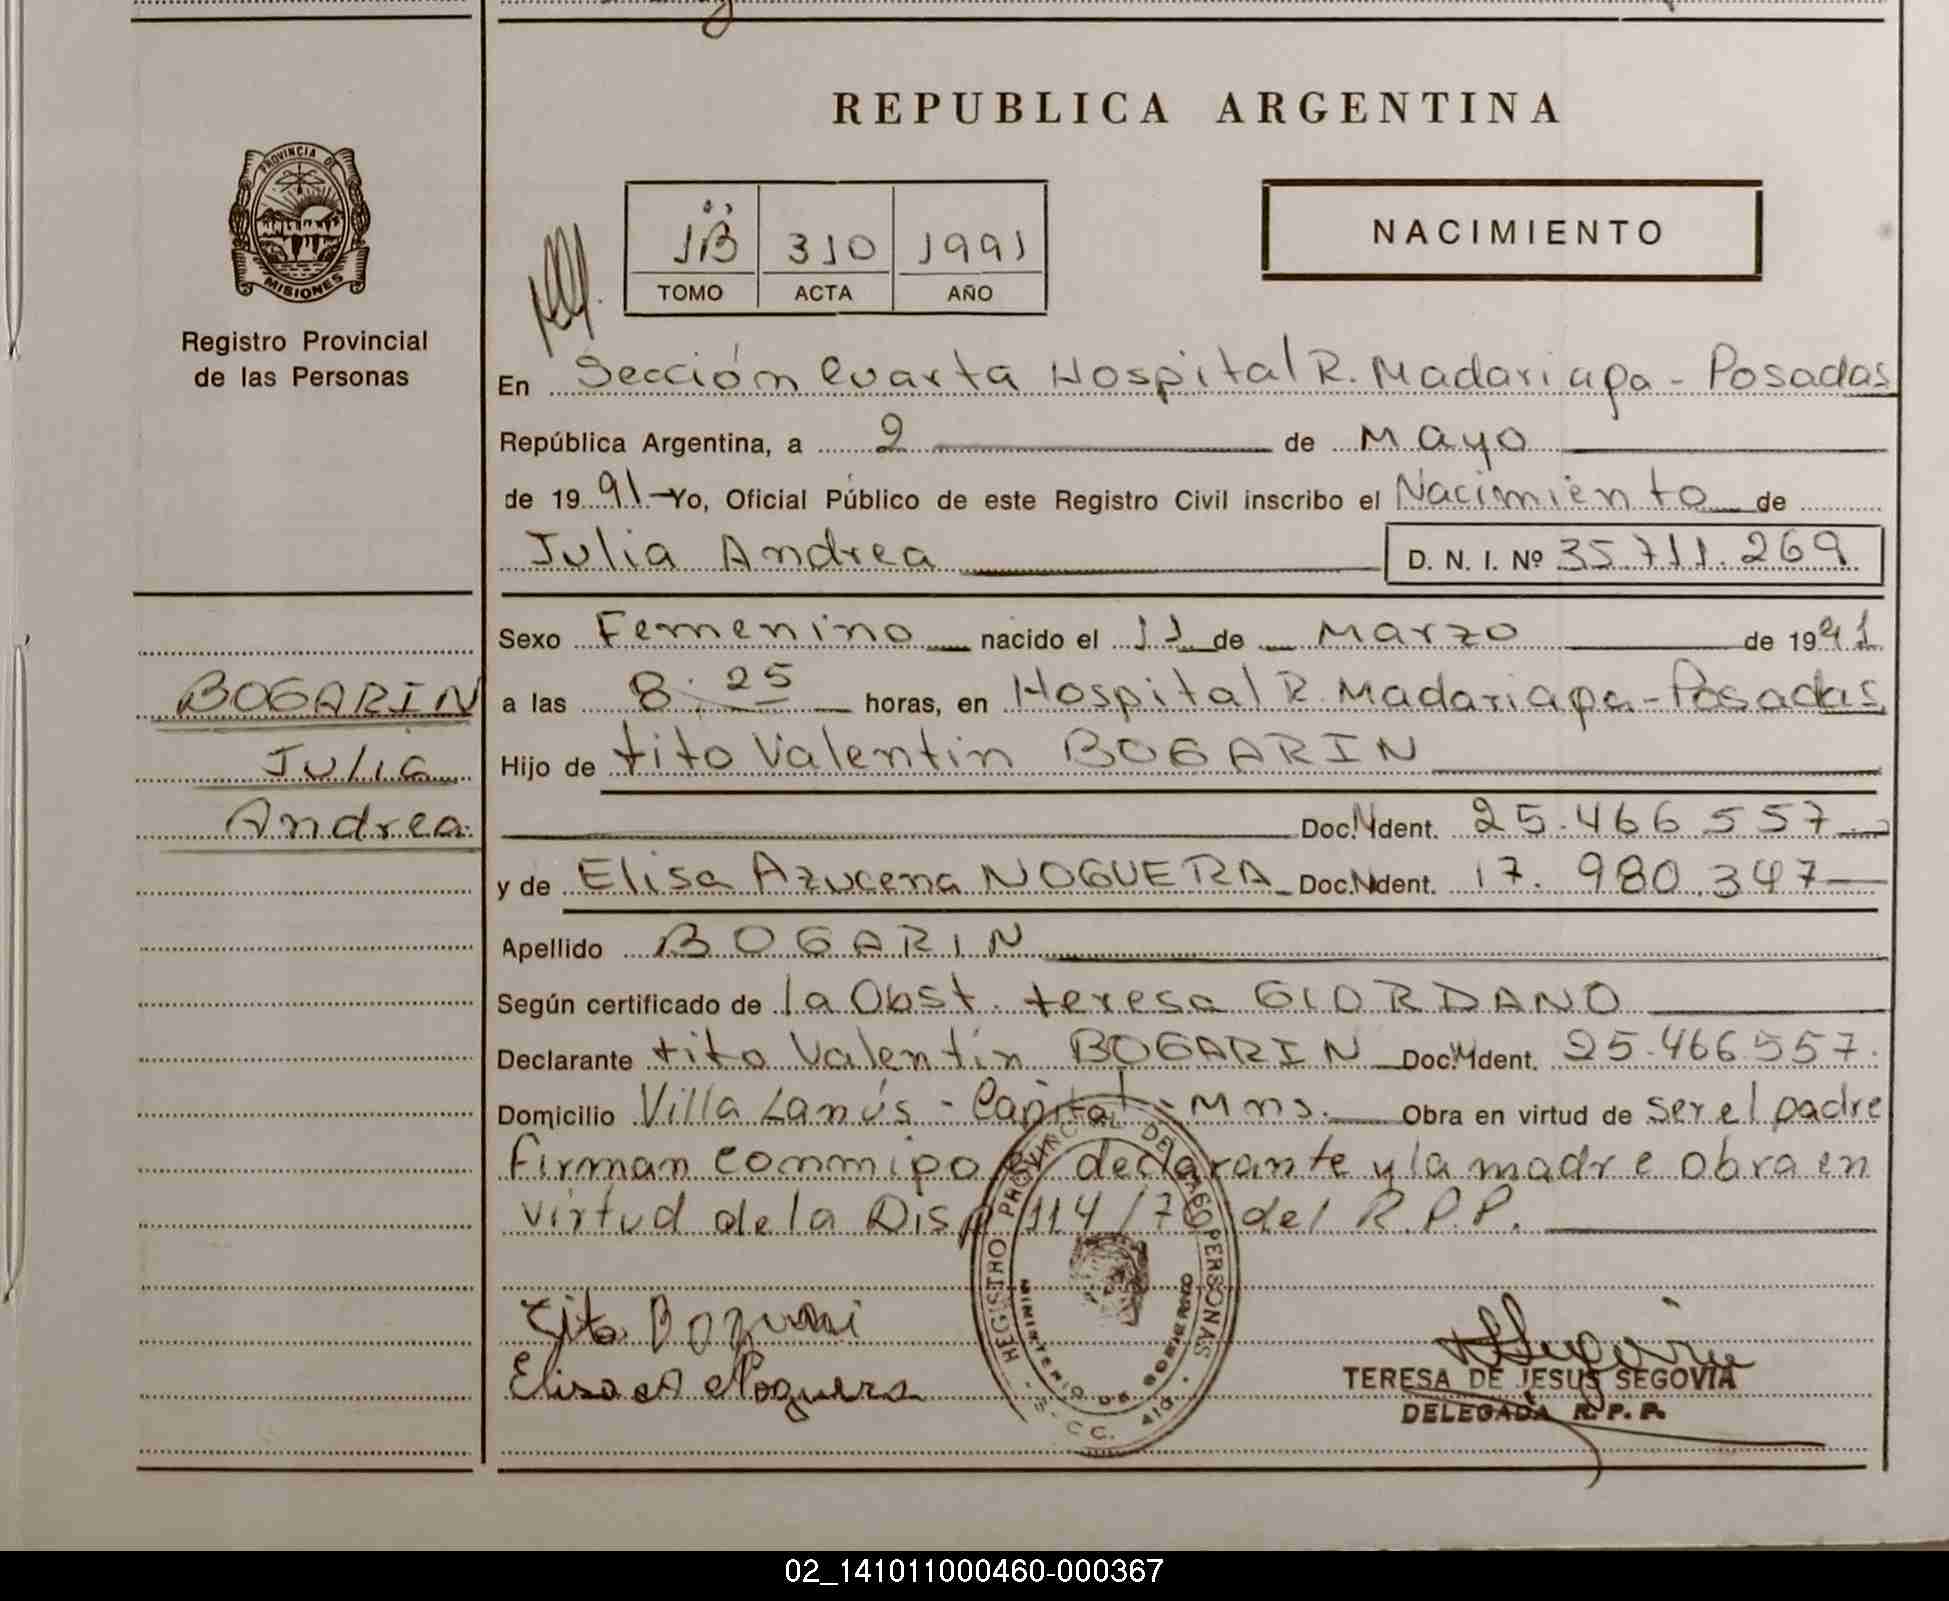 REPUBLICA ARGENTINA
PROVINCIA DE
MISIONES
Registro Provincial
de las Personas
1B 310 1991
TOMO ACTA AÑO
NACIMIENTO
En Sección Cuarta Hospital R. Madariaga - Posadas
República Argentina, a 2 de Mayo
de 1991 - Yo, Oficial Público de este Registro Civil inscribo el Nacimiento de
Julia Andrea D. N. I. Nº 35.711.269
Sexo Femenino nacido el 11 de Marzo de 1991
a las 8:25 horas, en Hospital R. Madariaga - Posadas
Hijo de tito Valentin BOGARIN
Doc. Ident. 25.466.557
y de Elisa Azucena NOGUERA Doc. Ident. 17.980.347
Apellido BOGARIN
Según certificado de la Obst. teresa GIORDANO
Declarante tito Valentín BOGARIN Doc. Ident. 25.466.557.
Domicilio Villa Lanús - Capital - Mns. Obra en virtud de ser el padre
Firman conmigo el declarante y la madre obra en
virtud de la Disp 114/76 del R.P.P.
BOGARIN
Julia
Andrea
REGISTRO PROVINCIAL DE LAS PERSONAS
MINISTERIO DE GOBIERNO
Elisa A Noguera
TERESA DE JESUS SEGOVIA
DELEGADA R. P. P.
02_141011000460-000367